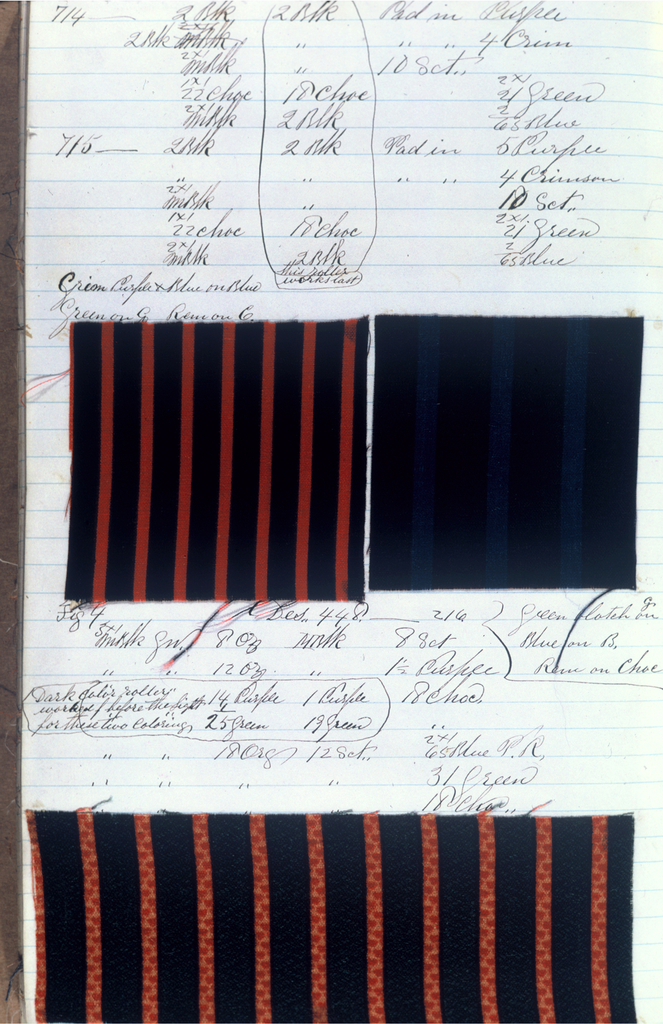 714 — 2 Blk 2 Blk Pad in Purple
2 Blk " " " 4 Crim
2x1 mBlk " 10 Sct.
1x1 22 Choc 18 Choc 2x1 21 Green
2x1 mBlk 2 Blk 2 65 Blue
715 — 2 Blk 2 Blk Pad in 5 Purple
" " " " 4 Crimson
2x1 mBlk " 10 Sct.
1x1 22 choc 18 choc 2x1 21 Green
2x1 mBlk 2 Blk 2 65 Blue
this roller
works last
Crim Purple & Blue on Blue
Green on G. Rem on C.
Fig 4 Des. 448 — 216 Green blotch on G
3x1 mBlk Gn 8 Og mBlk 8 Sct Blue on B.
" " 12 Og. " 1½ Purple Rem on Choc
Dark color roller 14 Purple 1 Purple 18 Choc
worked before the light
for these two colorings 25 Green 19 Green "
" " 18 Org 12 Sct. 2x1 65 Blue P.R.
" " " " 31 Green
18 Choc.